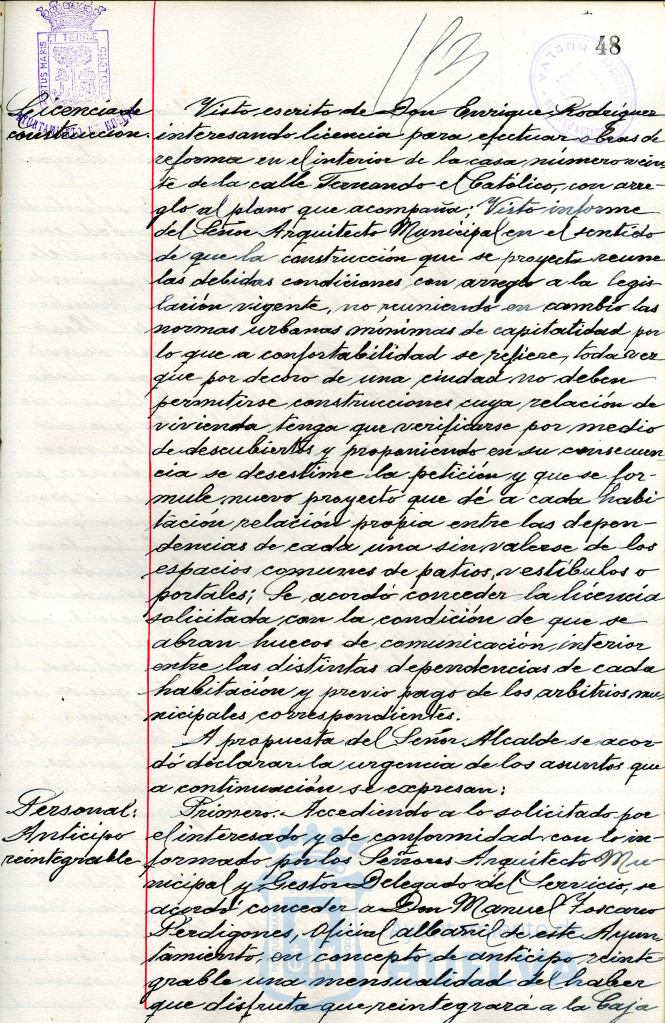 48
PORTUS MARIS ET TERRÆ CUSTODIA
AYUNTAMIENTO DE HUELVA
Licencia de
construccion.
Visto escrito de Don Enrique Rodríguez
interesando licencia para efectuar obras de
reforma en el interior de la casa, número vein-
te de la calle Fernando el Católico, con arre-
glo al plano que acompaña; Visto informe
del Señor Arquitecto Municipal en el sentido
de que la construcción que se proyecta reune
las debidas condiciones con arreglo a la legis
lación vigente, no reuniendo en cambio las
normas urbanas mínimas de capitalidad por
lo que a confortabilidad se refiere, toda vez
que por decoro de una ciudad no deben
permitirse construcciones cuya relación de
vivienda tenga que verificarse por medio
de descubiertos y proponiendo en su consecuen
cia se desestime la petición y que se for-
mule nuevo proyecto que dé a cada habi
tación relación propia entre las depen-
dencias de cada una sin valerse de los
espacios comunes de patios, vestíbulos o
portales; Se acordó conceder la licencia
solicitada con la condición de que se
abran huecos de comunicación interior
entre las distintas dependencias de cada
habitación y previo pago de los arbitrios mu-
nicipales correspondientes.
A propuesta del Señor Alcalde se acor-
dó declarar la urgencia de los asuntos que
a continuación se expresan:
Personal:
Anticipo
reintegrable
Primero. Accediendo a lo solicitado por
el interesado y de conformidad con lo in-
formado por los Señores Arquitecto Mu-
nicipal y Gestor Delegado del Servicio, se
acordó conceder a Don Manuel Toscano
Perdigones, Oficial albañil de este Ayun-
tamiento, en concepto de anticipo reinte
grable una mensualidad del haber
que disfruta que reintegrará a la Caja
HUELVA